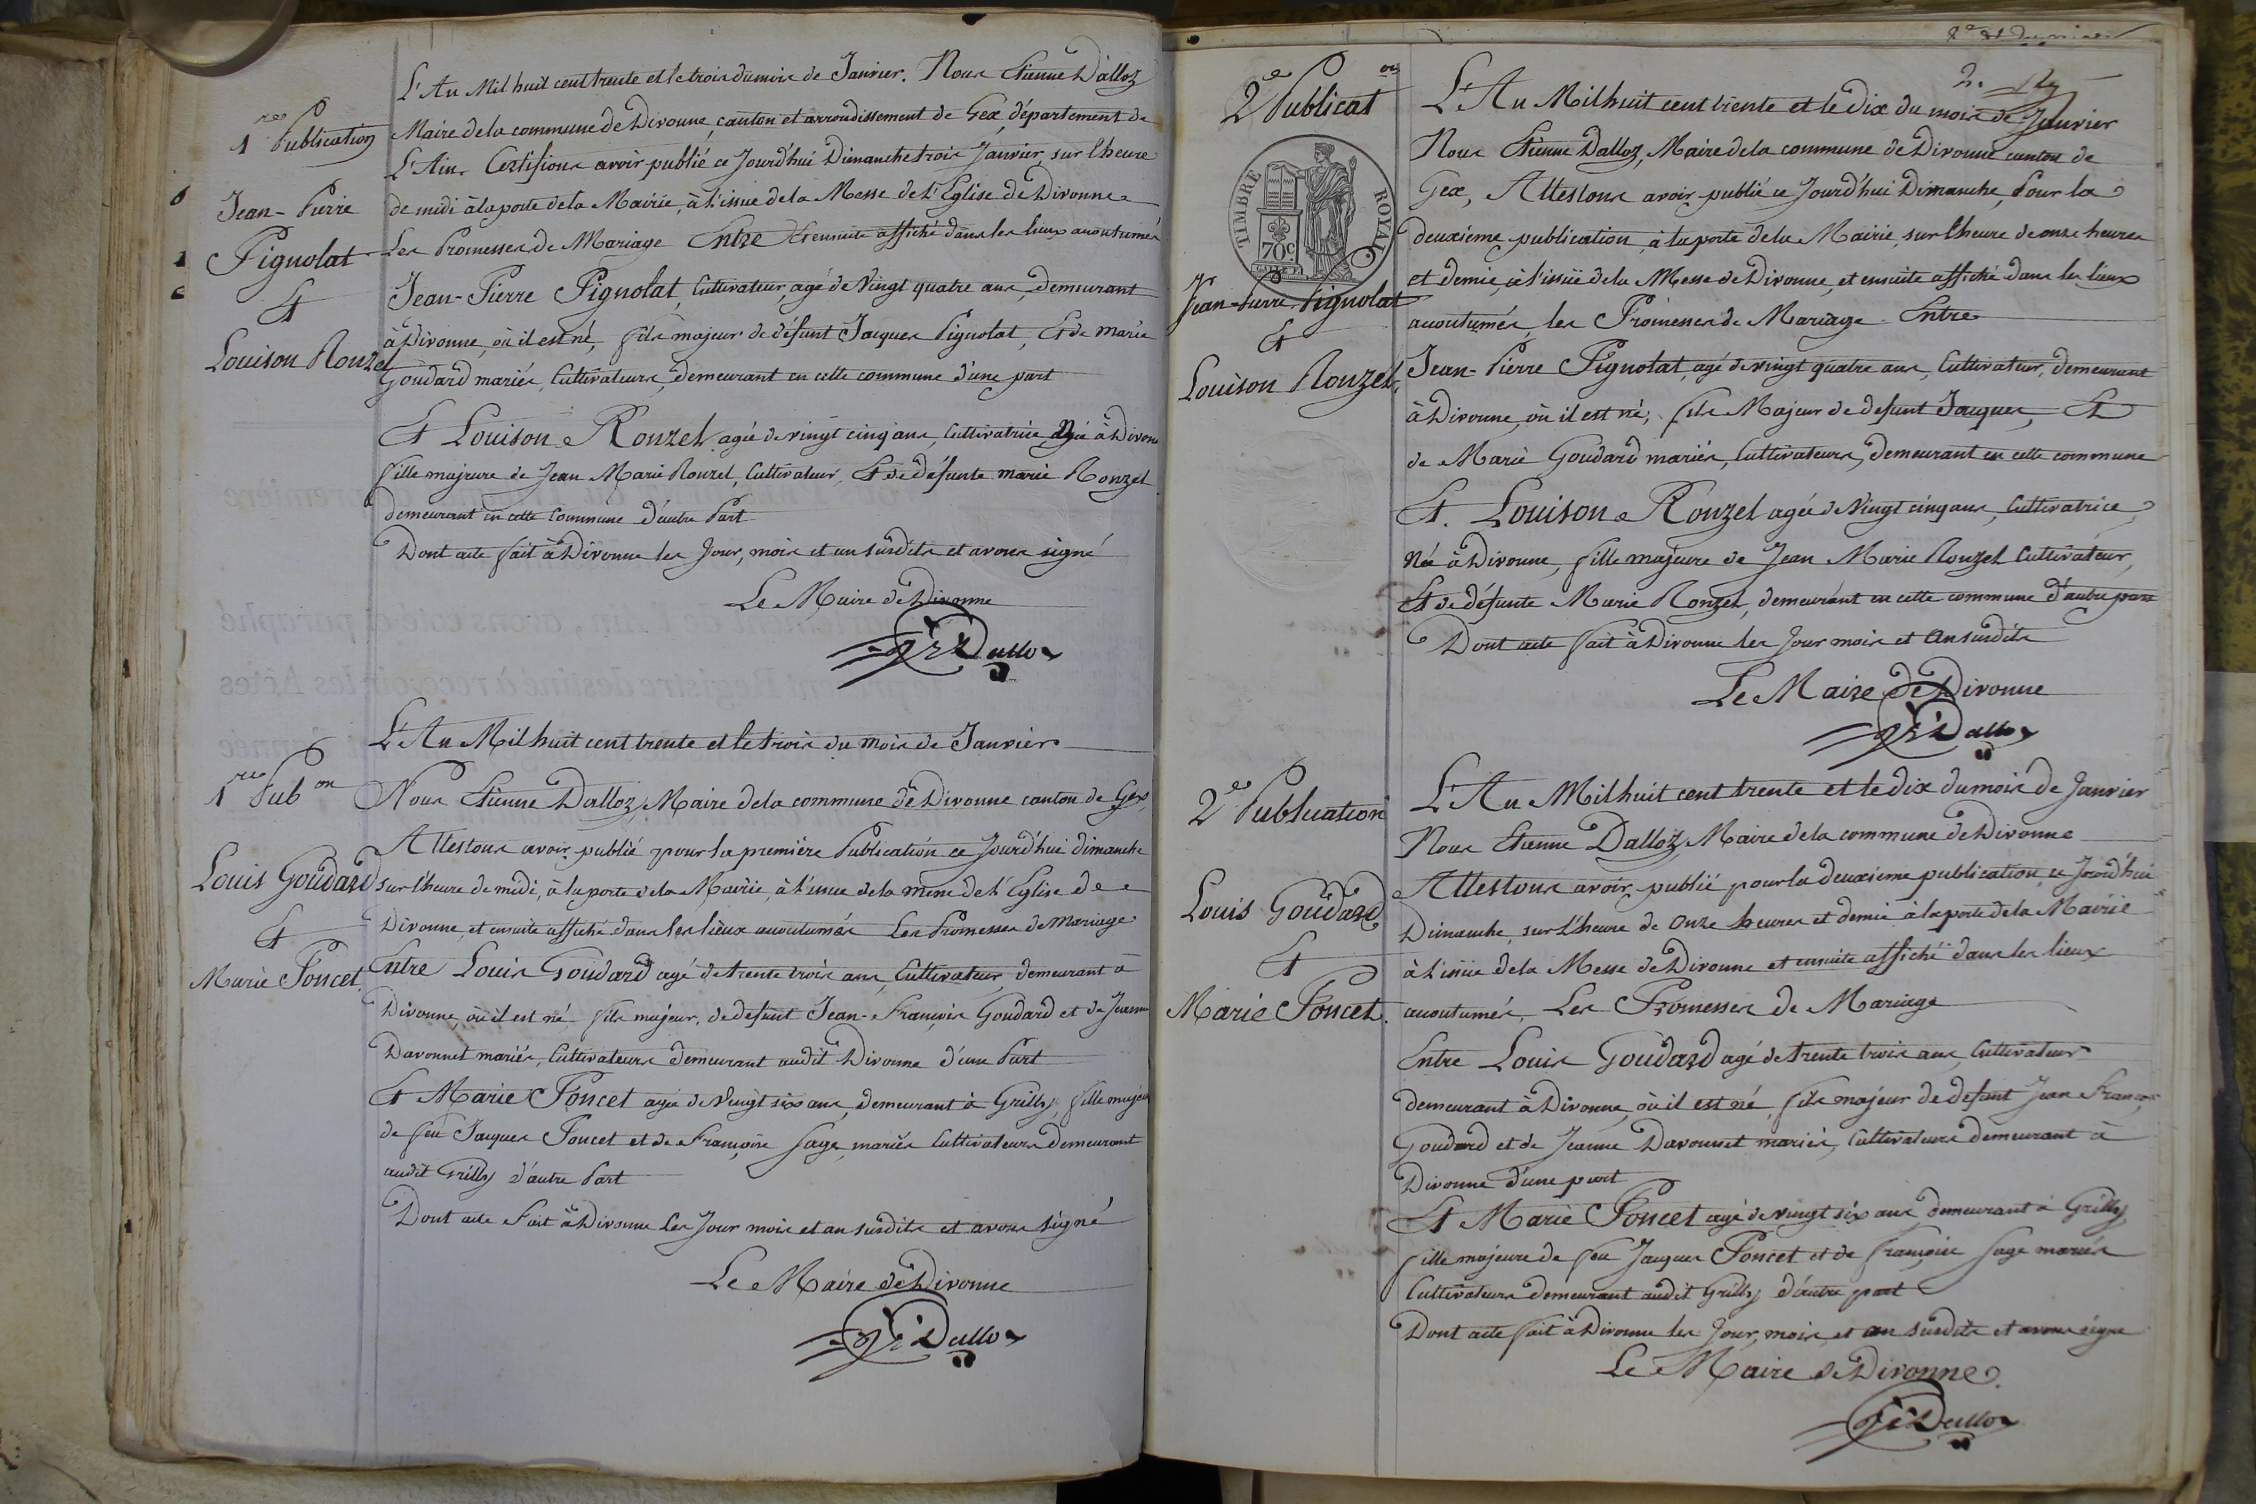 1re Publication
Jean-Pierre
Pignolat
Et
Louison Ronzel
L'An Mil huit cent trente et le trois du mois de Janvier. Nous Etienne Dalloz
Maire de la commune de Divonne, canton et arrondissement de Gex, département de
L'Ain, Certifions avoir publié ce Jourd'hui Dimanche trois Janvier, sur l'heure
de midi à la porte de la Mairie, à l'issue de la Messe de l'Eglise de Divonne
Les Promesses de Mariage Entre Et ensuite affiché dans les lieux acoutumés
Jean-Pierre Pignolat, Cultivateur, agé de Vingt quatre ans, demeurant
à Divonne, où il est né, fils majeur de défunt Jacques Pignolat, Et de marie
Goudard mariés, Cultivateurs, demeurant en cette commune d'une part
Et Louison Ronzel agée de vingt cinq ans, Cultivatrice, Née à Divonne
fille majeure de Jean Marie Ronzel, Cultivateur, Et de défunte marie Ronzel
demeurant en cette Commune d'autre Part
Dont acte fait à Divonne les Jour, mois et an susdits et avons signé
Le Maire de Divonne
Dalloz
1re Pub on
Louis Goudard
Et
Marie Poncet
L'An Mil huit cent trente et le trois du mois de Janvier
Nous Etienne Dalloz, Maire de la commune de Divonne canton de Gex,
Attestons avoir publié pour la première Publication ce Jourd'hui dimanche
sur l'heure de midi, à la porte de la Mairie, à l'issue de la messe de l'Eglise de
Divonne, et ensuite affiché dans les lieux acoutumés Les Promesses de Mariage
Entre Louis Goudard agé de trente trois ans, Cultivateur, demeurant à
Divonne, où il est né fils majeur, de defunt Jean-François Goudard et de Jeanne
Davonnet mariés, Cultivateurs demeurant audit Divonne d'une Part
Et Marie Poncet agée de Vingt six ans, demeurant à Grilly, fille majeure
de feu Jacques Poncet et de Françoise Sage, mariés Cultivateurs demeurant
audit Grilly d'autre Part
Dont acte Fait à Divonne Les Jour mois et an susdits et avons signé
Le Maire de Divonne
Dalloz
2e et dernier
2.
2e Publicat on
TIMBRE ROYAL
70c
Jean-Pierre Pignolat
Et
Louison Ronzel
L'An Mil huit cent trente et le Dix du mois de Janvier
Nous Etienne Dalloz, Maire de la commune de Divonne canton de
Gex, Attestons avoir publié ce Jourd'hui Dimanche, Pour la
deuxieme publication, à la porte de la Mairie, sur l'heure de onze heures
et demie, à l'issüe de la Messe de Divonne, et ensuite affiché dans les lieux
acoutumés, les Promesses de Mariage Entre
Jean-Pierre Pignolat, agé de vingt quatre ans, Cultivateur, demeurant
à Divonne, où il est né, fils Majeur de defunt Jacques, Et
de Marie Goudard mariés, Cultivateurs, demeurant en cette commune
Et. Louison Ronzel agée de Vingt cinq ans, Cultivatrice,
Née à Divonne, fille majeure de Jean Marie Ronzel Cultivateur,
Et de défunte Marie Ronzel, demeurant en cette commune d'autre part
Dont acte fait à Divonne les Jour mois et An susdits
Le Maire de Divonne
Dalloz
2e Publication
Louis Goudard
Et
Marie Poncet.
L'An Mil huit cent trente et le Dix du mois de Janvier
Nous Etienne Dalloz, Maire de la commune de Divonne
Attestons avoir publié pour la deuxieme publication, ce Jourd'hui
Dimanche, sur l'heure de Onze heures et demie à la porte de la Mairie
à l'issüe de la Messe de Divonne et ensuite affiché dans les lieux
acoutumés, Les Promesses de Mariage
Entre Louis Goudard agé de trente trois ans, Cultivateur
demeurant à Divonne, où il est né, fils majeur de defunt Jean François
Goudard et de Jeanne Davonnet mariés, Cultivateurs demeurant à
Divonne d'une part
Et Marie Poncet agé de vingt six ans, demeurant à Grilly,
fille majeure de feu Jacques Poncet et de Françoise Sage mariés
Cultivateurs demeurant audit Grilly d'autre part
Dont acte fait à Divonne les Jour, mois et an susdits et avons signé
Le Maire de Divonne.
Dalloz